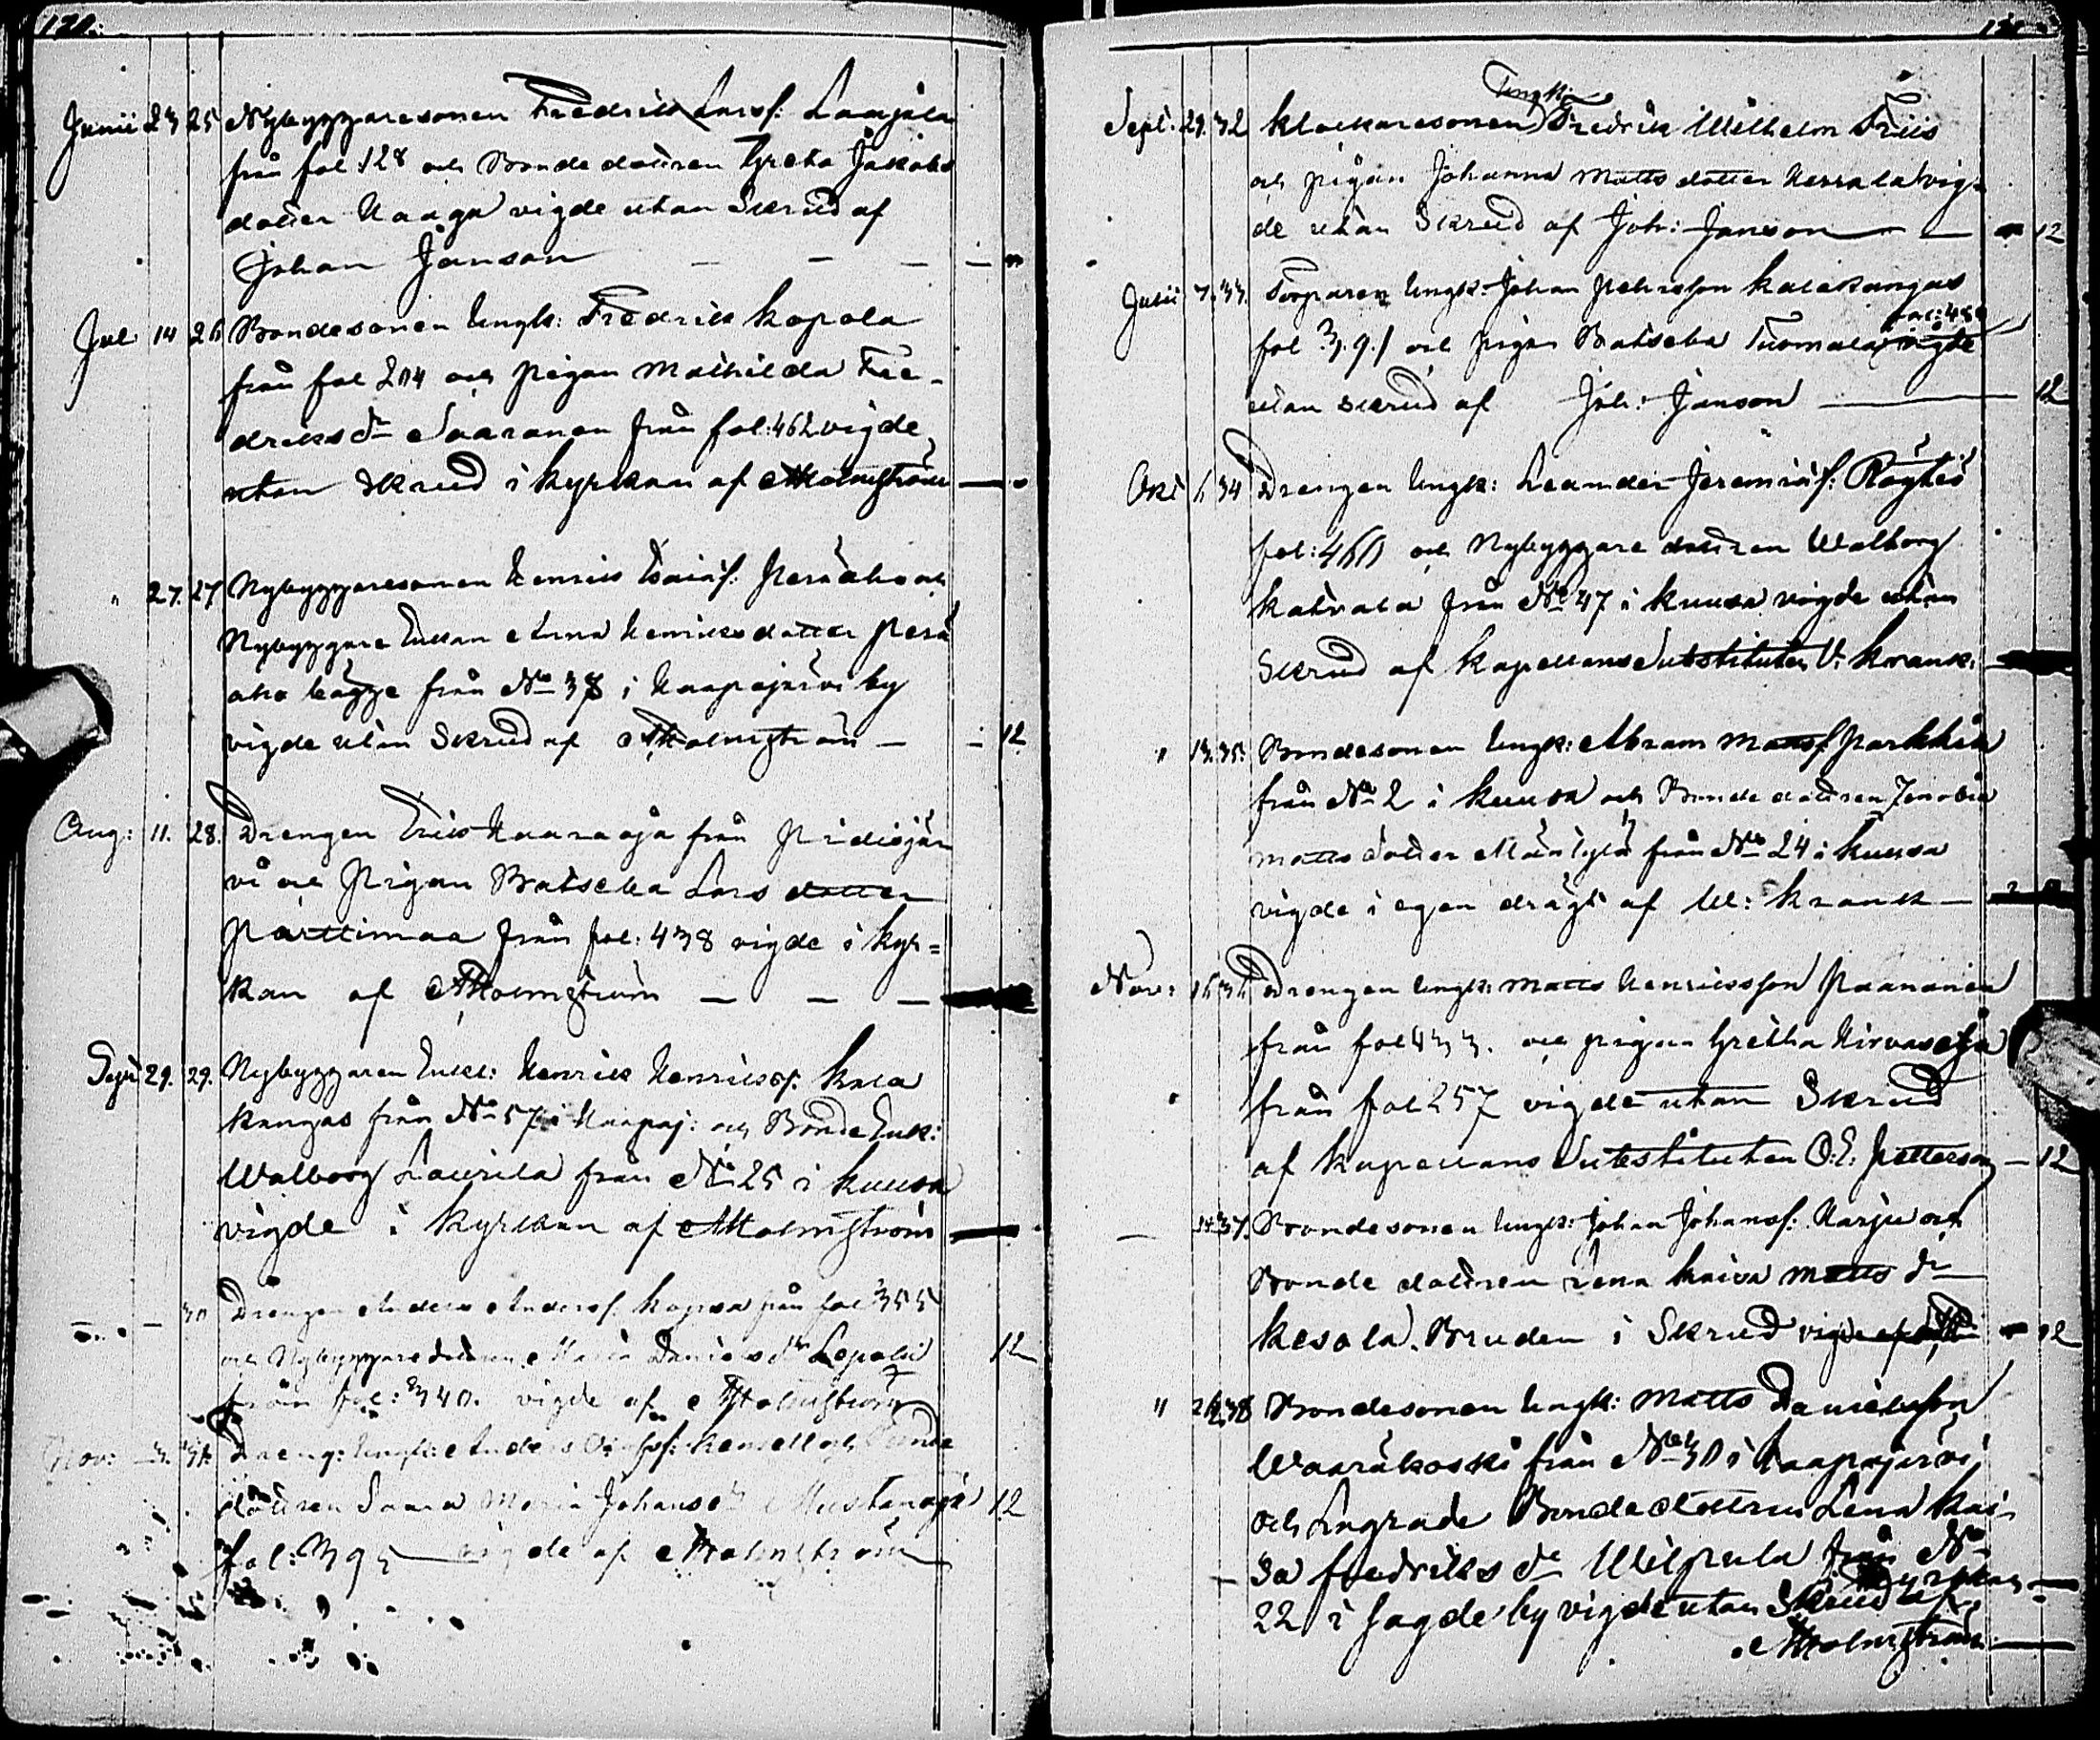 120.
Junii 23 25 Nybyggaresonen Fredrik Larsf. Laajala
från fol. 128 och Bonde dottren Greta Jakobs
dotter Haaga vigde utan Skrud af
Johan Janson
Jul. 14 26 Bondesonen Ungk: Fredrik Kopola
från fol 204 och pigan Mathilda Fre-
driks dr Saaranen från fol: 462 vigde
utan Skrud i kyrkan af A Holmström
" 27. 27 Nybyggaresonen Henrick Esaiæf. Peräaho och
Nybyggare Enkan Anna Henricsdotter Perä
aho bägge från No 38 i Haapajärvi by
vigde utan Skrud af A Holmström 12
Aug: 11. 28. Drengen Eric Haaraoja från Pidisjär
vi och Pigan Batseba Lars dotter
Parttimaa från fol: 438 vigde i kyr=
kan af A Holmström
Sept 29. 29. Nybyggaren Enkl: Henrick Henricsf. Kala
kangas från No 57 i Haapaj: och Bonde Enk:
Walborg Laurila från No 25 i Kuusa
vigde i kyrkan af A Holmström
30 Drengen Anders Andersf. Kopsa från fol 355
och Nybyggare dottren Maria Daniels dr Lepola 12
från fol: 340. vigde af A Holmström
Nov: 3. 31. Dreng: Ungk: Anders
dottren Saara Maria Johans dr Mustanoja 12
fol: 395 vigde af A Holmström
Sept. 29. 32 Klockaresonen Ungk: Fredrik Wilhelm Friis
och pigan Johanna Matts dotter Kerrala vig-
de utan Skrud af Joh: Janson 12
Julii 7. 33. Torparen Ungk: Johan Pehrsson Kalakangas
fol 391 och pigan Batseba Tuomala fol: 450 vigde
utan Skrud af Joh: Janson 12
Oct 6 34 Drengen Ungk: Leander Jeremiæf: Röytiö
fol: 460 och Nybyggare dottren Walborg
Katvala från No 47 i Kuusa vigde utan
Skrud af Kapellans Substituten V. Kranck.
" 13. 35. Bondesonen Ungk: Abram Mattsf Parkkila
från No 2 i Kuusa och Bonde dottren Zenobia
Matts dotter Määttylä från No 24 i Kuusa
vigde i egen drägt af W: Kranck
Nov: 16 36 Drengen Ungk: Matts Henricsson Paananen
från fol 433. och pigan Gretha Hirvasoja
från fol 257 vigde utan Skrud
af Kapellans Substituten O. E. Petterson 12
37. Bondesonen Ungk: Johan Johansf: Harju och
Bonde dottren Lena Kaisa Matts dr
Kesola. Bruden i Skrud vigde af A H 12
" 38 Bondesonen Ungk: Matts Danielsson
Waaräkoski från No 30 i Haapajärvi
och Lagrade Bonde dottren Lena Kai-
sa Fredriks dr Wilpula från No
22 i sagde by vigde utan Skrud i kyrkan af
A Holmström